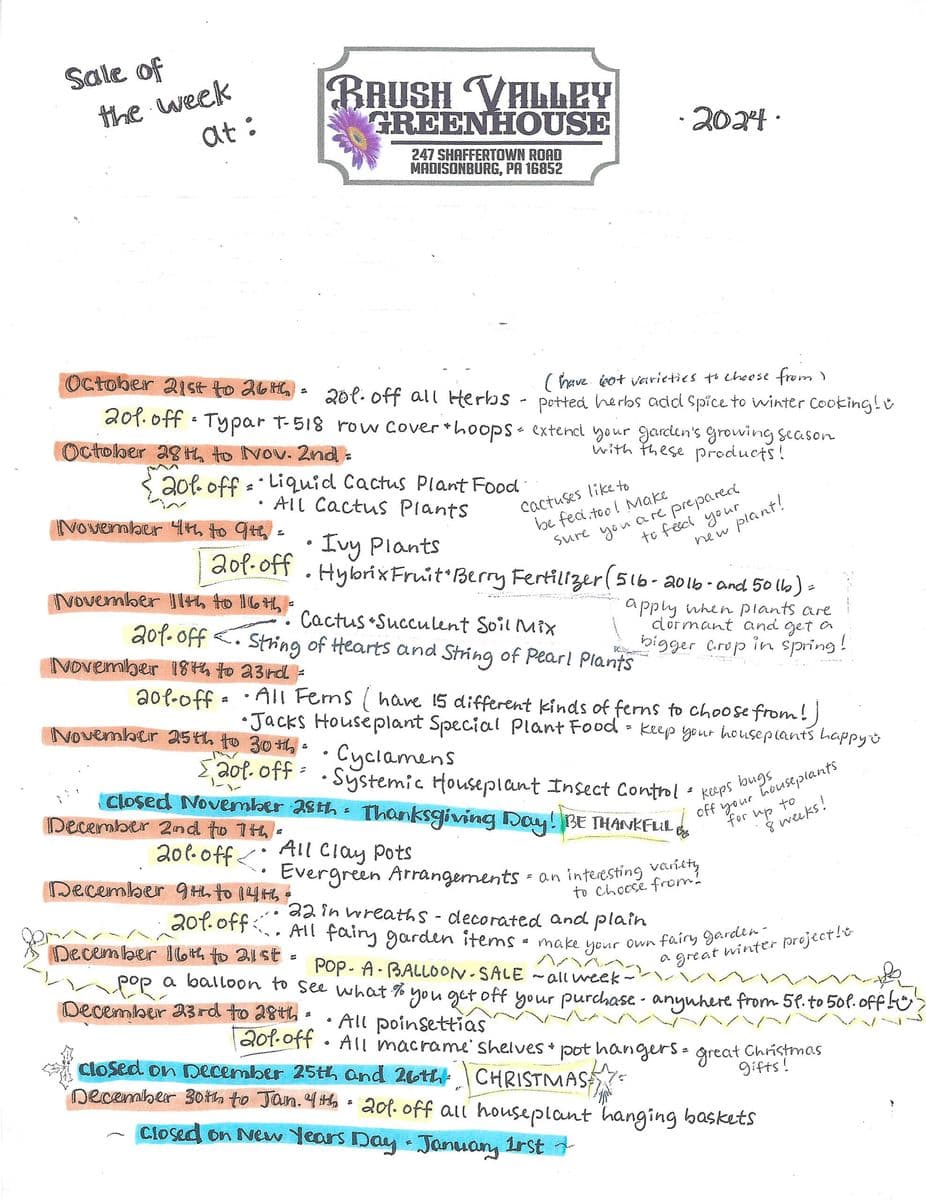 Sale of
the week
at:
BRUSH VALLEY
GREENHOUSE
247 SHAFFERTOWN ROAD
MADISONBURG, PA 16852
· 2024 ·
October 21st to 26th = 20% off all Herbs - potted herbs add spice to winter cooking!
( have lot varieties to choose from )
20% off = Typar T-518 row cover + hoops = extend your garden's growing season
with these products!
October 28th to Nov. 2nd =
20% off = · Liquid Cactus Plant Food
· All Cactus Plants
cactuses like to
be fed too! Make
sure you are prepared
to feed your
new plant!
November 4th to 9th =
20% off
· Ivy Plants
· Hybrix Fruit + Berry Fertilizer (5lb - 20lb - and 50lb) =
apply when plants are
dormant and get a
bigger crop in spring!
November 11th to 16th =
20% off
· Cactus + Succulent Soil Mix
· String of Hearts and String of Pearl Plants
November 18th to 23rd =
20% off = · All Ferns ( have 15 different kinds of ferns to choose from! )
· Jacks Houseplant Special Plant Food = keep your houseplants happy
November 25th to 30th =
20% off =
· Cyclamens
· Systemic Houseplant Insect Control = keeps bugs
off your houseplants
for up to
8 weeks!
Closed November 28th = Thanksgiving Day! BE THANKFUL
December 2nd to 7th =
20% off
· All Clay Pots
· Evergreen Arrangements = an interesting variety
to choose from!
December 9th to 14th =
20% off
· 22 in wreaths - decorated and plain
· All fairy garden items = make your own fairy garden -
a great winter project!
December 16th to 21st =
POP - A - BALLOON - SALE ~ all week ~
pop a balloon to see what % you get off your purchase - anywhere from 5% to 50% off!
December 23rd to 28th =
20% off
· All poinsettias
· All macrame' shelves + pot hangers = great Christmas
gifts!
Closed on December 25th and 26th = CHRISTMAS
December 30th to Jan. 4th = 20% off all houseplant hanging baskets
~ Closed on New Years Day - January 1rst ~